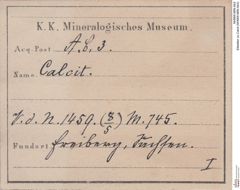 K. K. Mineralogisches Museum.
Acq.-Post A. E. 3.
Name Calcit.
V. d. N. 1459. (8/5) M. 745.
Fundort Freiberg, Sachsen.
I